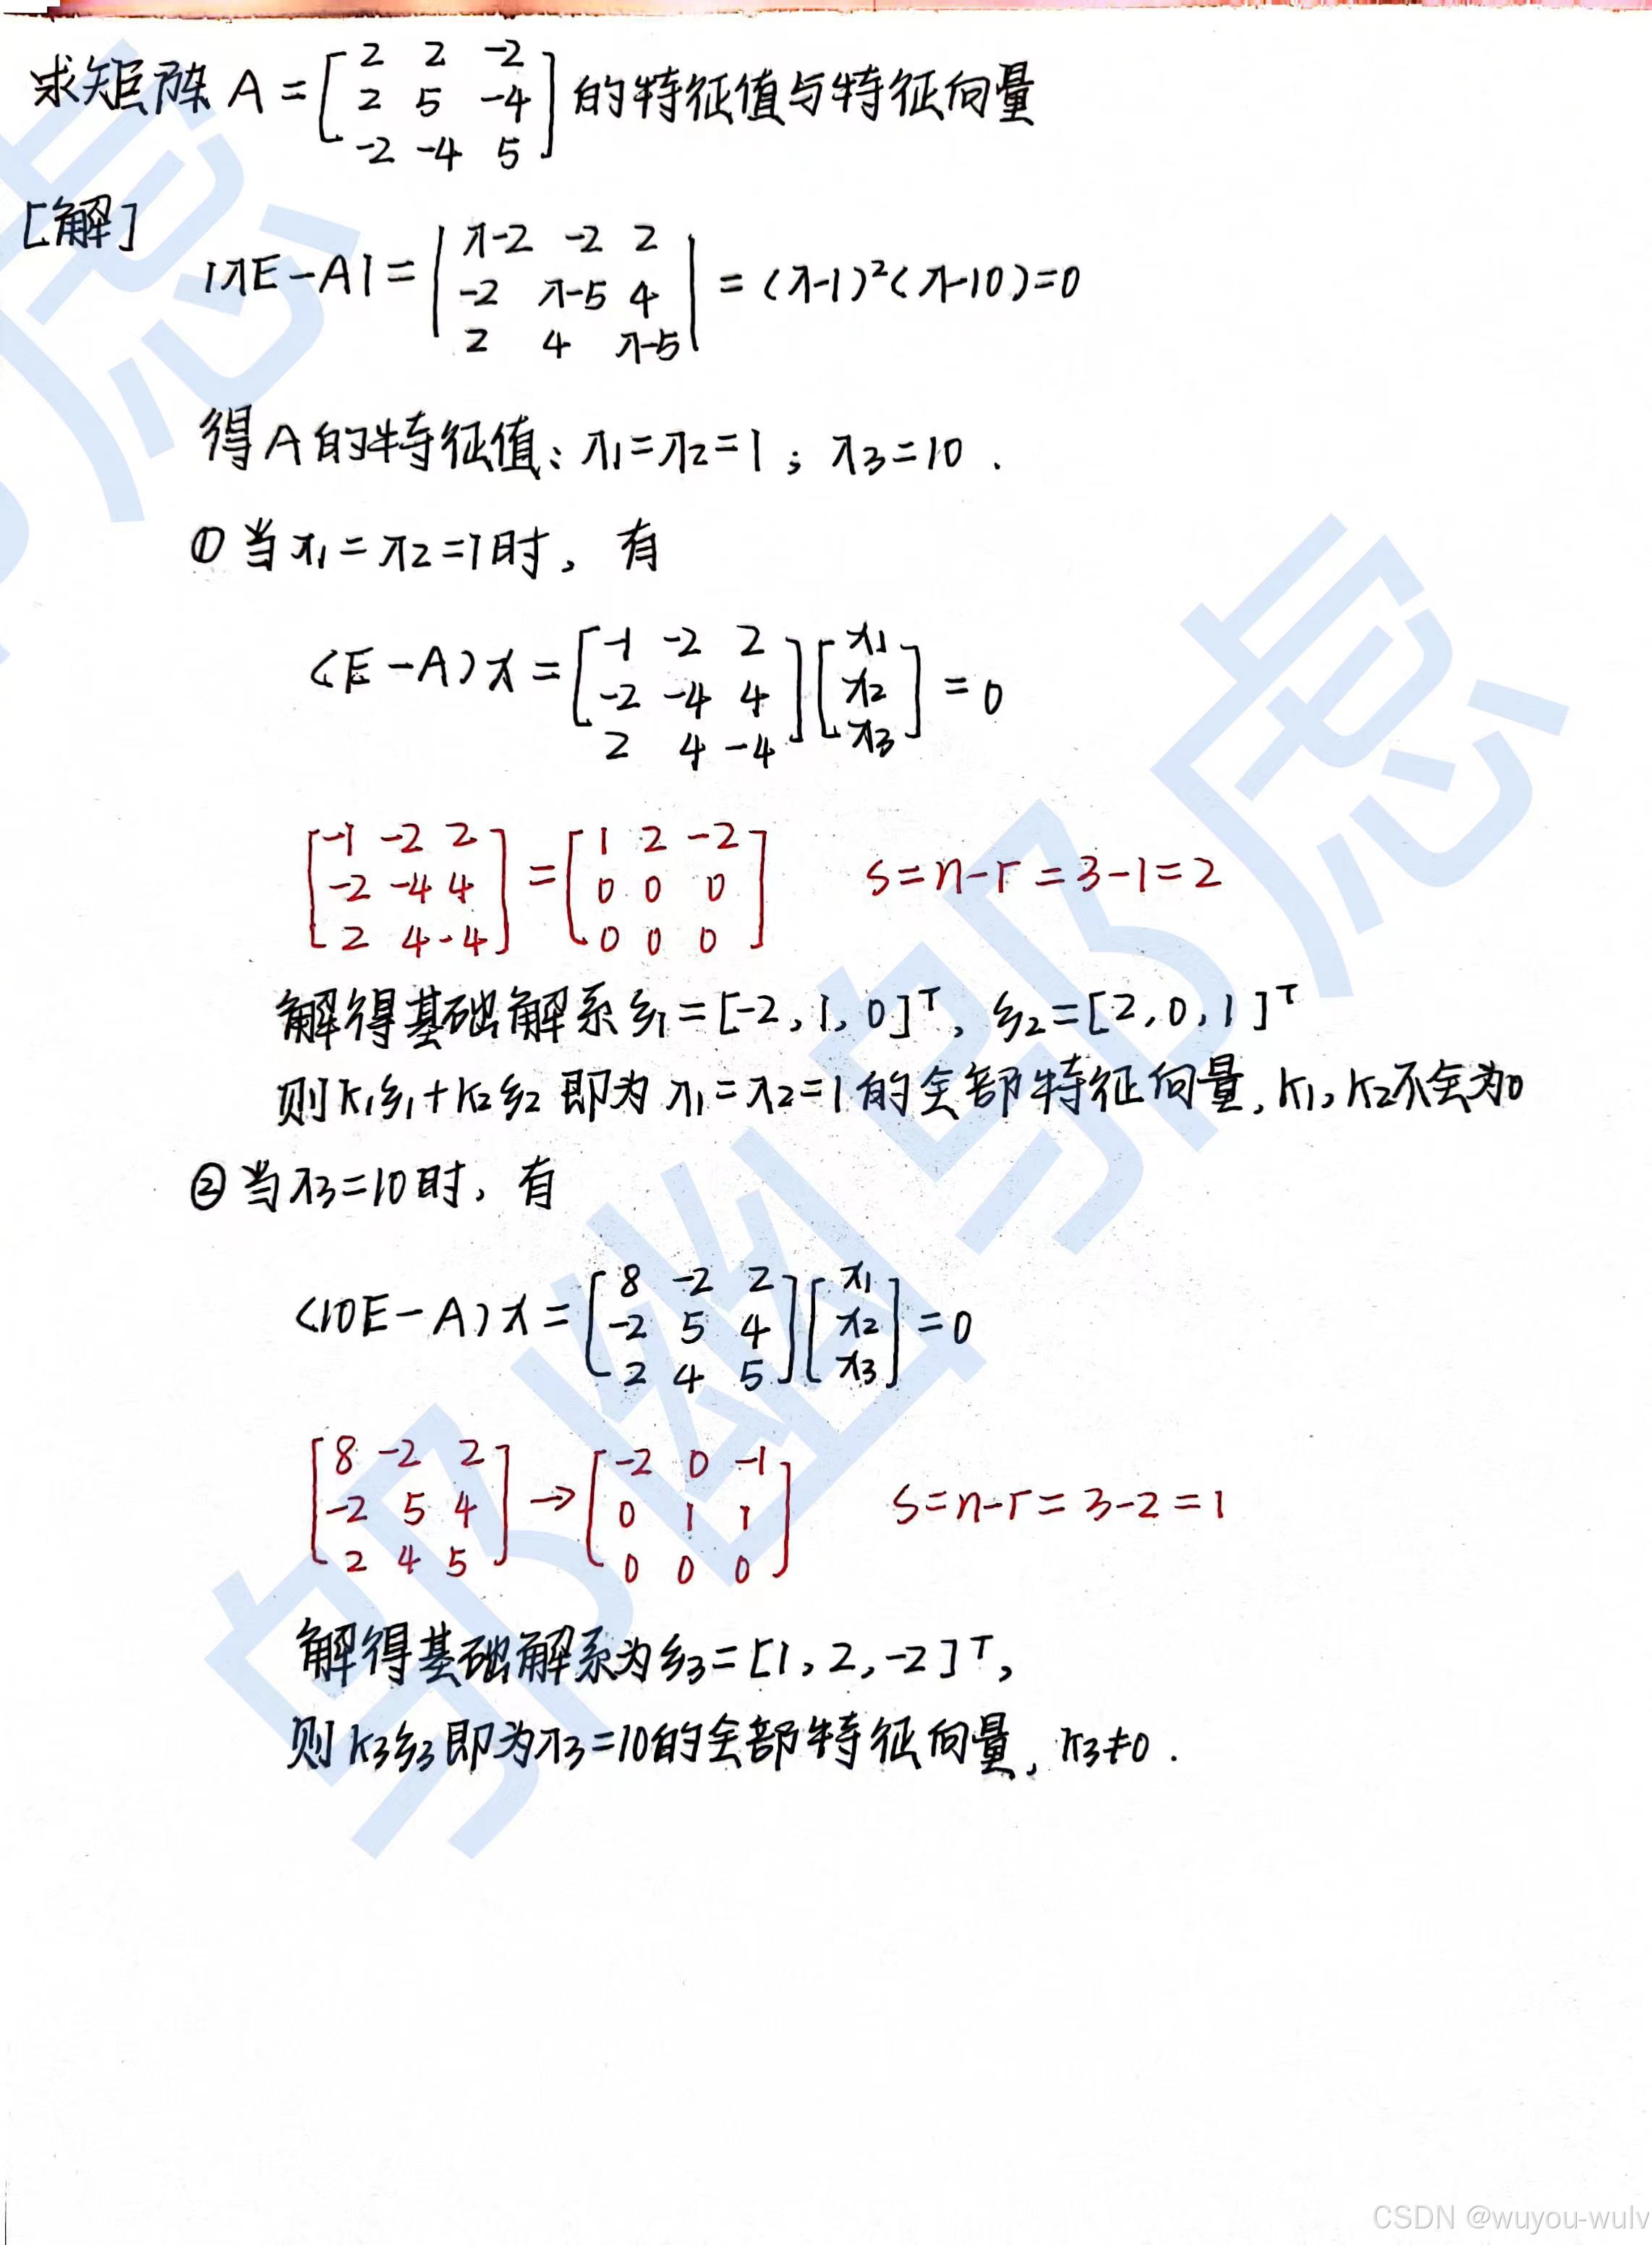 求矩阵 A = [2 2 -2; 2 5 -4; -2 -4 5] 的特征值与特征向量
[解]
|λE-A| = |λ-2 -2 2; -2 λ-5 4; 2 4 λ-5| = (λ-1)²(λ-10)=0
得A的特征值: λ1=λ2=1; λ3=10.
① 当λ1=λ2=1时, 有
(E-A)x = [-1 -2 2; -2 -4 4; 2 4 -4][x1; x2; x3] = 0
[-1 -2 2; -2 -4 4; 2 4 -4] = [1 2 -2; 0 0 0; 0 0 0] s=n-r=3-1=2
解得基础解系ξ1=[-2,1,0]ᵀ, ξ2=[2,0,1]ᵀ
则k1ξ1+k2ξ2 即为 λ1=λ2=1的全部特征向量, k1, k2不全为0
② 当λ3=10时, 有
(10E-A)x = [8 -2 2; -2 5 4; 2 4 5][x1; x2; x3] = 0
[8 -2 2; -2 5 4; 2 4 5] → [-2 0 -1; 0 1 1; 0 0 0] s=n-r=3-2=1
解得基础解系为ξ3=[1,2,-2]ᵀ,
则k3ξ3即为λ3=10的全部特征向量, k3≠0.
邬幽邬虑
CSDN @wuyou-wulv